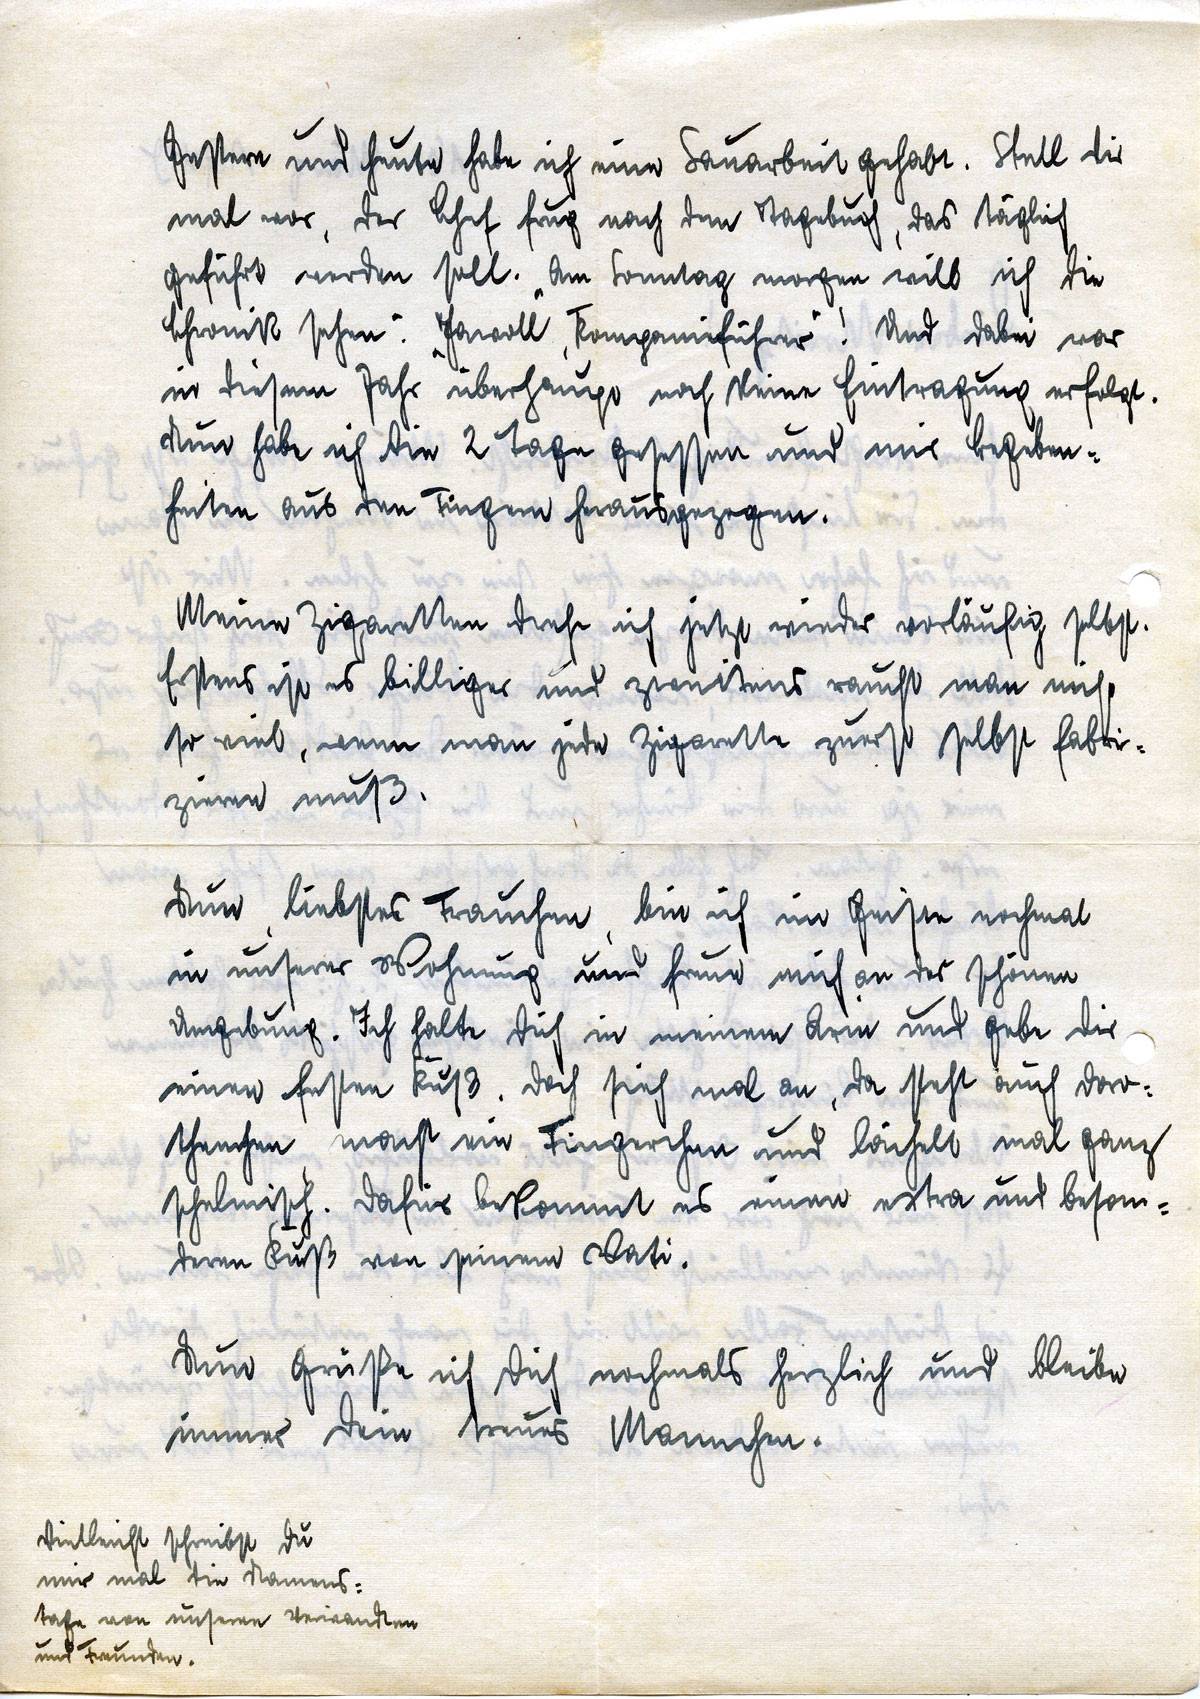 Gestern und heute habe ich eine Sauarbeit gehabt. Stell dir
mal vor, der Chef frug nach dem Tagebuch, das täglich
geführt werden soll. „Am Sonntag morgen will ich die
Chronik sehen". „Jawoll, Kompanieführer"! Und dabei war
in diesem Jahr überhaupt noch keine Eintragung erfolgt.
Nun habe ich die 2 Tage gesessen und mir Begeben=
heiten aus den Fingern herausgezogen.
Meine Zigaretten drehe ich jetzt wieder vorläufig selbst.
Erstens ist es billiger und zweitens raucht man nicht
so viel, wenn man jede Zigarette zuerst selbst fabri=
zieren muß.
Nun, liebstes Frauchen, bin ich im Geiste nochmal
in unserer Wohnung und freue mich an der schönen
Umgebung. Ich halte Dich in meinem Arm und gebe Dir
einen festen Kuß. Doch sieh mal an, da steht auch Doro=
theachen, macht ein Fingerchen und lächelt mal ganz
schelmisch. Dafür bekommt es einen extra und beson=
deren Kuß von seinem Vati.
Nun Grüße ich Dich nochmals herzlich und bleibe
immer Dein treues Mannchen.
Vielleicht schreibst Du
mir mal die Namens=
tage von unseren Verwandten
und Freunden.